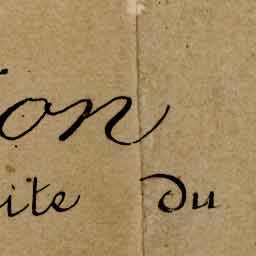 ion
ite du